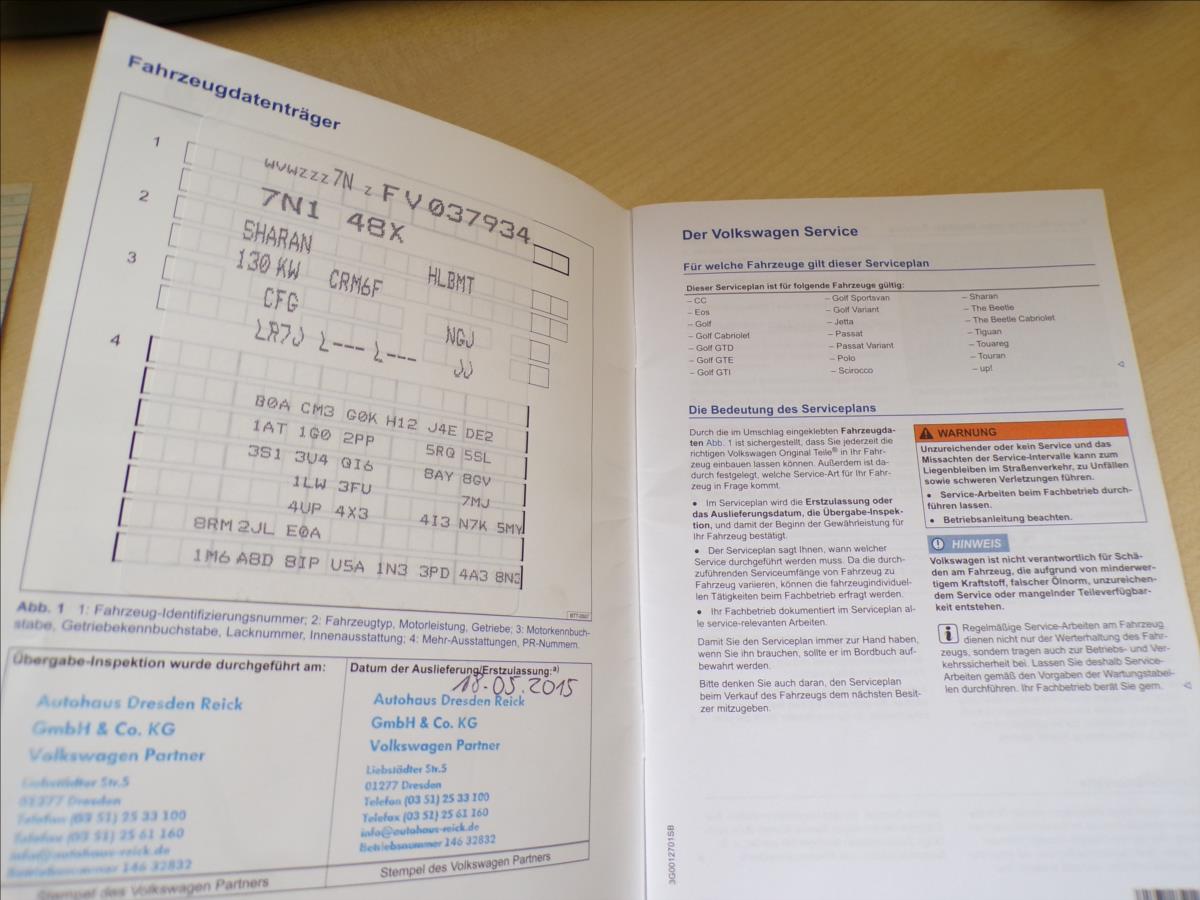 Fahrzeugdatenträger
1
WVWZZZ7N Z FV037934
2
7N1 48X
SHARAN
130 KW CRM6F HLBMT
3
CFG NGJ
LR7J L--- L--- JJ
4
B0A CM3 G0K H12 J4E DE2
1AT 1G0 2PP 5RQ 5SL
3S1 3U4 QI6 8AY 8GV
1LW 3FU 7MJ
4UP 4X3 4I3 N7K 5MY
8RM 2JL E0A
1M6 A8D 8IP U5A 1N3 3PD 4A3 8N3
Abb. 1 1: Fahrzeug-Identifizierungsnummer; 2: Fahrzeugtyp, Motorleistung, Getriebe; 3: Motorkennbuch-
stabe, Getriebekennbuchstabe, Lacknummer, Innenausstattung; 4: Mehr-Ausstattungen, PR-Nummern.
Übergabe-Inspektion wurde durchgeführt am:
Autohaus Dresden Reick
GmbH & Co. KG
Volkswagen Partner
Liebstädter Str.5
01277 Dresden
Telefon (03 51) 25 33 100
Telefax (03 51) 25 61 160
info@autohaus-reick.de
Betriebsnummer 146 32832
Stempel des Volkswagen Partners
Datum der Auslieferung/Erstzulassung:a)
18.05.2015
Autohaus Dresden Reick
GmbH & Co. KG
Volkswagen Partner
Liebstädter Str.5
01277 Dresden
Telefon (03 51) 25 33 100
Telefax (03 51) 25 61 160
info@autohaus-reick.de
Betriebsnummer 146 32832
Stempel des Volkswagen Partners
Der Volkswagen Service
Für welche Fahrzeuge gilt dieser Serviceplan
Dieser Serviceplan ist für folgende Fahrzeuge gültig:
– CC
– Eos
– Golf
– Golf Cabriolet
– Golf GTD
– Golf GTE
– Golf GTI
– Golf Sportsvan
– Golf Variant
– Jetta
– Passat
– Passat Variant
– Polo
– Scirocco
– Sharan
– The Beetle
– The Beetle Cabriolet
– Tiguan
– Touareg
– Touran
– up!
Die Bedeutung des Serviceplans
Durch die im Umschlag eingeklebten Fahrzeugda-
ten Abb. 1 ist sichergestellt, dass Sie jederzeit die
richtigen Volkswagen Original Teile® in Ihr Fahr-
zeug einbauen lassen können. Außerdem ist da-
durch festgelegt, welche Service-Art für Ihr Fahr-
zeug in Frage kommt.
● Im Serviceplan wird die Erstzulassung oder
das Auslieferungsdatum, die Übergabe-Inspek-
tion, und damit der Beginn der Gewährleistung für
Ihr Fahrzeug bestätigt.
● Der Serviceplan sagt Ihnen, wann welcher
Service durchgeführt werden muss. Da die durch-
zuführenden Serviceumfänge von Fahrzeug zu
Fahrzeug variieren, können die fahrzeugindividuel-
len Tätigkeiten beim Fachbetrieb erfragt werden.
● Ihr Fachbetrieb dokumentiert im Serviceplan al-
le service-relevanten Arbeiten.
Damit Sie den Serviceplan immer zur Hand haben,
wenn Sie ihn brauchen, sollte er im Bordbuch auf-
bewahrt werden.
Bitte denken Sie auch daran, den Serviceplan
beim Verkauf des Fahrzeugs dem nächsten Besit-
zer mitzugeben.
WARNUNG
Unzureichender oder kein Service und das
Missachten der Service-Intervalle kann zum
Liegenbleiben im Straßenverkehr, zu Unfällen
sowie schweren Verletzungen führen.
● Service-Arbeiten beim Fachbetrieb durch-
führen lassen.
● Betriebsanleitung beachten.
HINWEIS
Volkswagen ist nicht verantwortlich für Schä-
den am Fahrzeug, die aufgrund von minderwer-
tigem Kraftstoff, falscher Ölnorm, unzureichen-
dem Service oder mangelnder Teileverfügbar-
keit entstehen.
Regelmäßige Service-Arbeiten am Fahrzeug
dienen nicht nur der Werterhaltung des Fahr-
zeugs, sondern tragen auch zur Betriebs- und Ver-
kehrssicherheit bei. Lassen Sie deshalb Service-
Arbeiten gemäß den Vorgaben der Wartungstabel-
len durchführen. Ihr Fachbetrieb berät Sie gern.
3G0012701SB